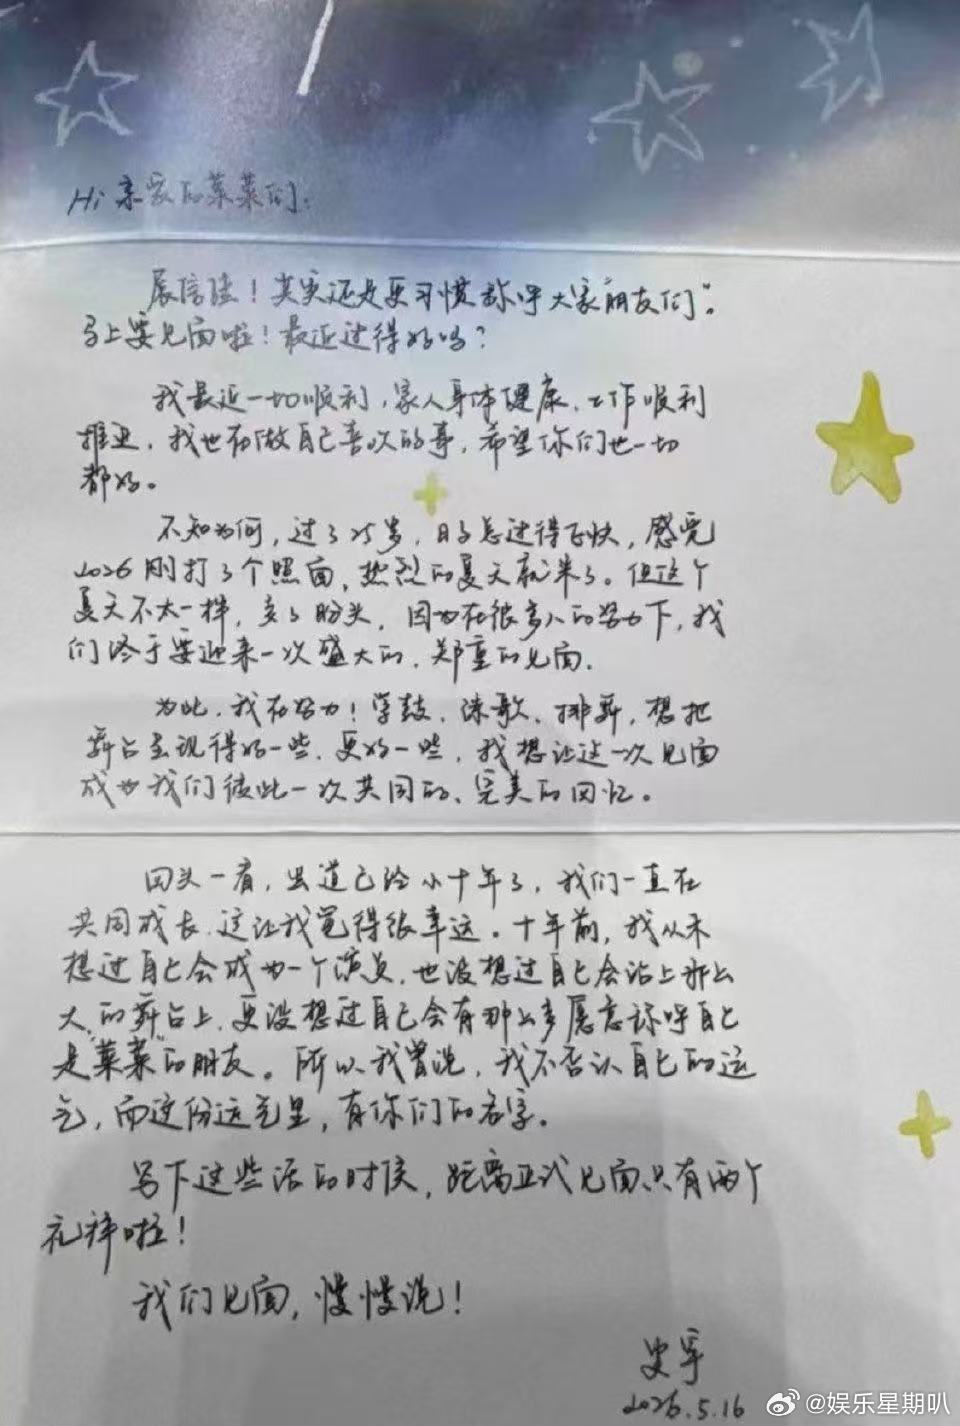 Hi 亲爱的菜菜们：
展信佳！其实还是更习惯称呼大家“朋友们”。
马上要见面啦！最近过得好吗？
我最近一切顺利，家人身体健康，工作顺利
推进，我也在做自己喜欢的事，希望你们也一切
都好。
不知为何，过了25岁，日子总过得飞快，感觉
2026刚打了个照面，热烈的夏天就来了。但这个
夏天不太一样，多了盼头，因为在很多人的努力下，我
们终于要迎来一次盛大的，郑重的见面。
为此，我在努力！学鼓、练歌、排舞，想把
舞台呈现得好一些，更好一些，我想让这一次见面
成为我们彼此一次共同的、完美的回忆。
回头一看，出道已经小十年了，我们一直在
共同成长，这让我觉得很幸运。十年前，我从未
想过自己会成为一个演员，也没想过自己会站上那么
大的舞台上，更没想过自己会有那么多愿意称呼自己
是“菜菜”的朋友。所以我曾说，我不否认自己的运
气，而这份运气里，有你们的名字。
写下这些话的时候，距离正式见面只有两个
礼拜啦！
我们见面，慢慢说！
2026.5.16
@娱乐星期叭